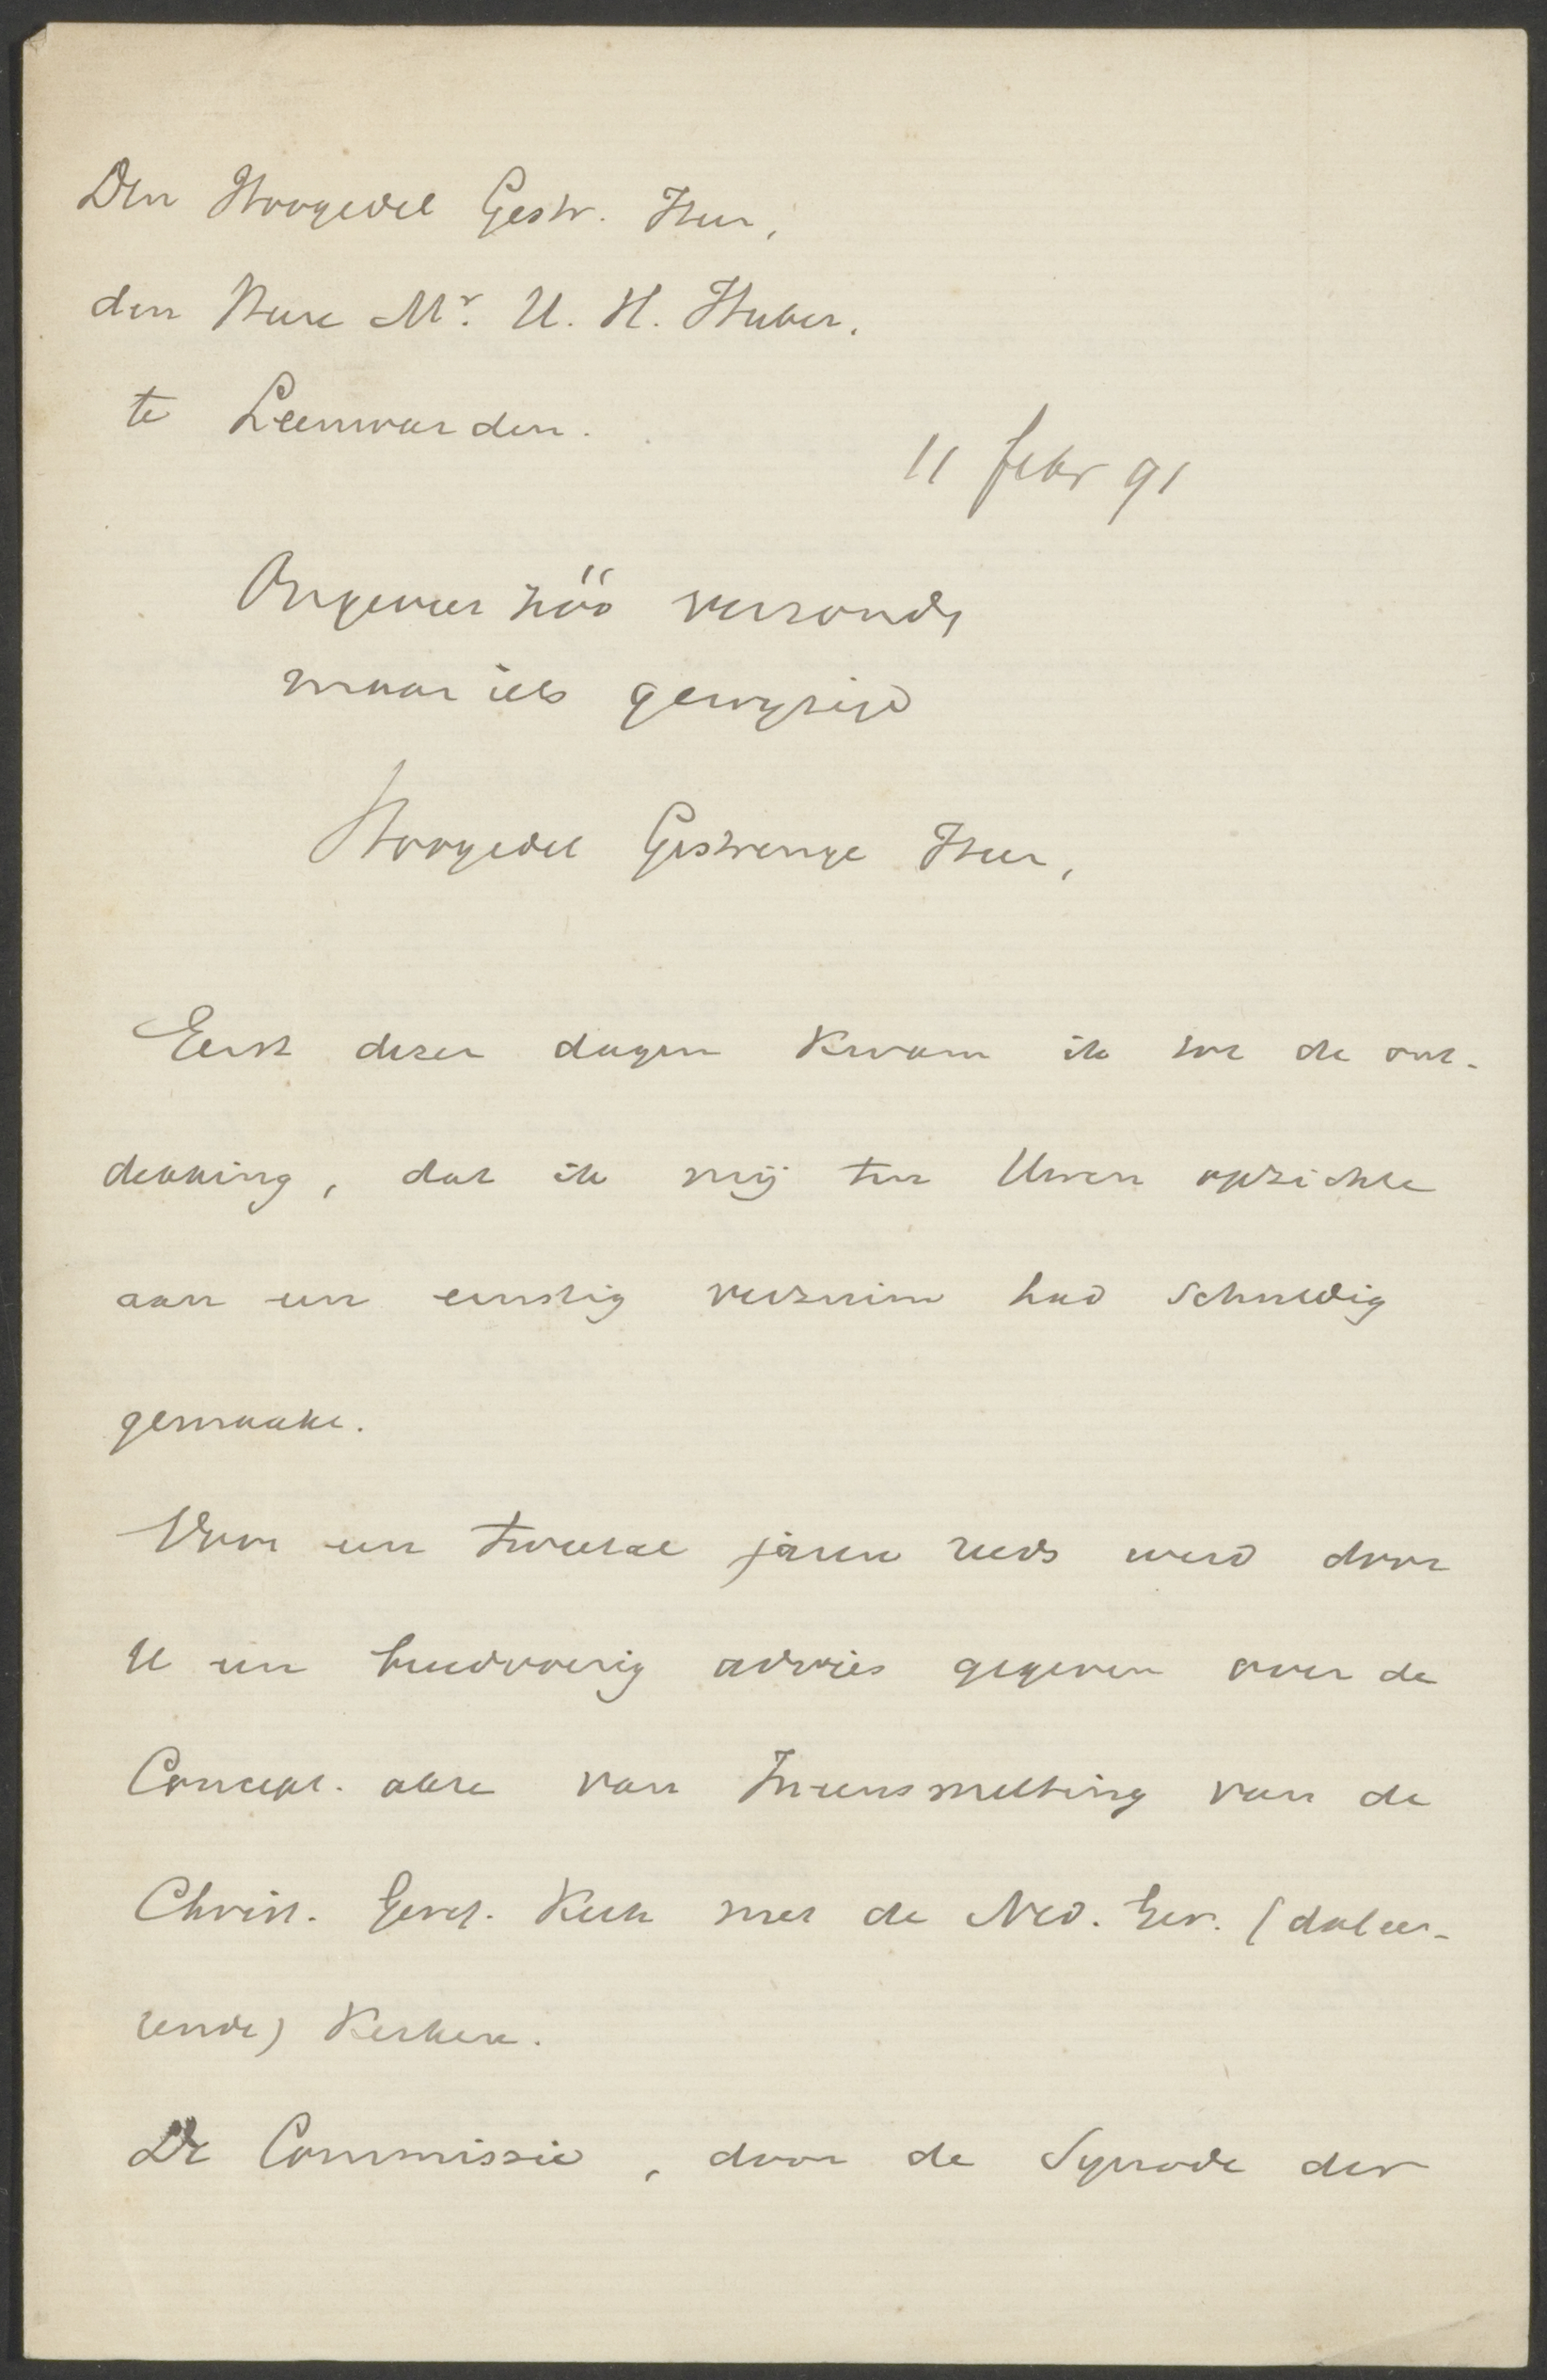 Den Hoogedel Gestr. Heer,
den Heere Mr. U. H. Huber.
te Leeuwarden.
11 febr 91
Ongeveer zóó verzonden
maar iets gewijzigd
Hoogedel Gestrenge Heer,
Eerst dezer dagen kwam ik tot de ont-
dekking, dat ik mij ten Uwen opzichte
aan een ernstig verzuim had schuldig
gemaakt.
Voor een tweetal jaren reeds werd door
U een breedvoerig advies gegeven over de
Concept-akte van Ineensmelting van de
Christ. Geref. Kerk met de Ned. Ger. (dolee-
rende) Kerken.
De Commissie, door de Synode der